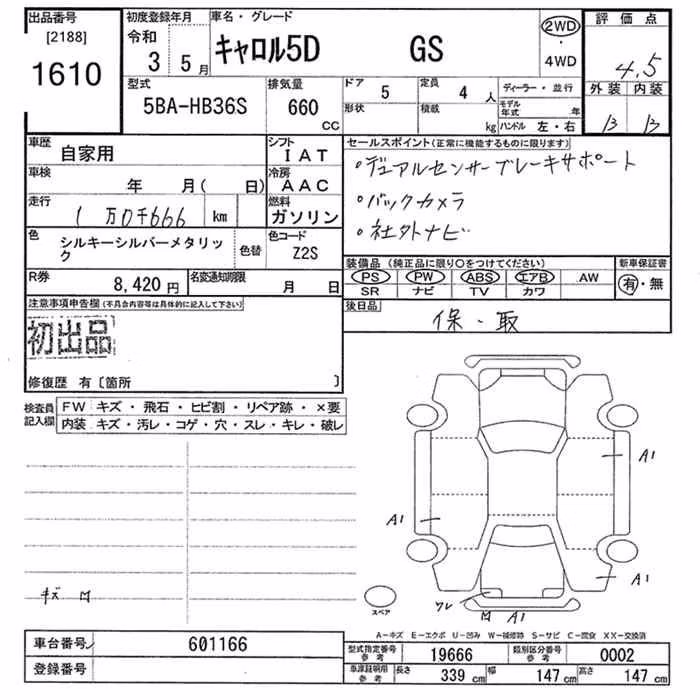 出品番号
[2188]
1610
初度登録年月
令和
3 5月
車名・グレード
キャロル5D GS
2WD
・
4WD
評価点
4.5
外装 内装
B B
型式
5BA-HB36S
排気量
660
CC
ドア
5
定員
4 人
形状
積載
kg
ディーラー・並行
モデル年式 年
ハンドル 左・右
車歴
自家用
シフト
IAT
車検
年 月( 日)
冷房
AAC
走行
1万0千666 km
燃料
ガソリン
色
シルキーシルバーメタリック
色替
色コード
Z2S
R券
8,420 円
名変通知期限
月 日
セールスポイント(正常に機能するものに限ります)
・デュアルセンサーブレーキサポート
・バックカメラ
・社外ナビ
装備品(純正品に限り○をつけてください)
PS PW ABS エアB AW
SR ナビ TV カワ
新車保証書
有・無
後日品
保・取
注意事項申告欄(不具合内容等は具体的に記入して下さい)
初出品
修復歴 有〔箇所 〕
検査員記入欄
FW キズ・飛石・ヒビ割・リペア跡・×要
内装 キズ・汚レ・コゲ・穴・スレ・キレ・破レ
A1
A1
A1
ワレ
A1
キズ
スペア
A-キズ E-エクボ U-凹み W-補修跡 S-サビ C-腐食 XX-交換済
車台番号
601166
登録番号
型式指定番号
参考
19666
類別区分番号
参考
0002
車庫証明用
参考
長さ 339 cm 幅 147 cm 高さ 147 cm